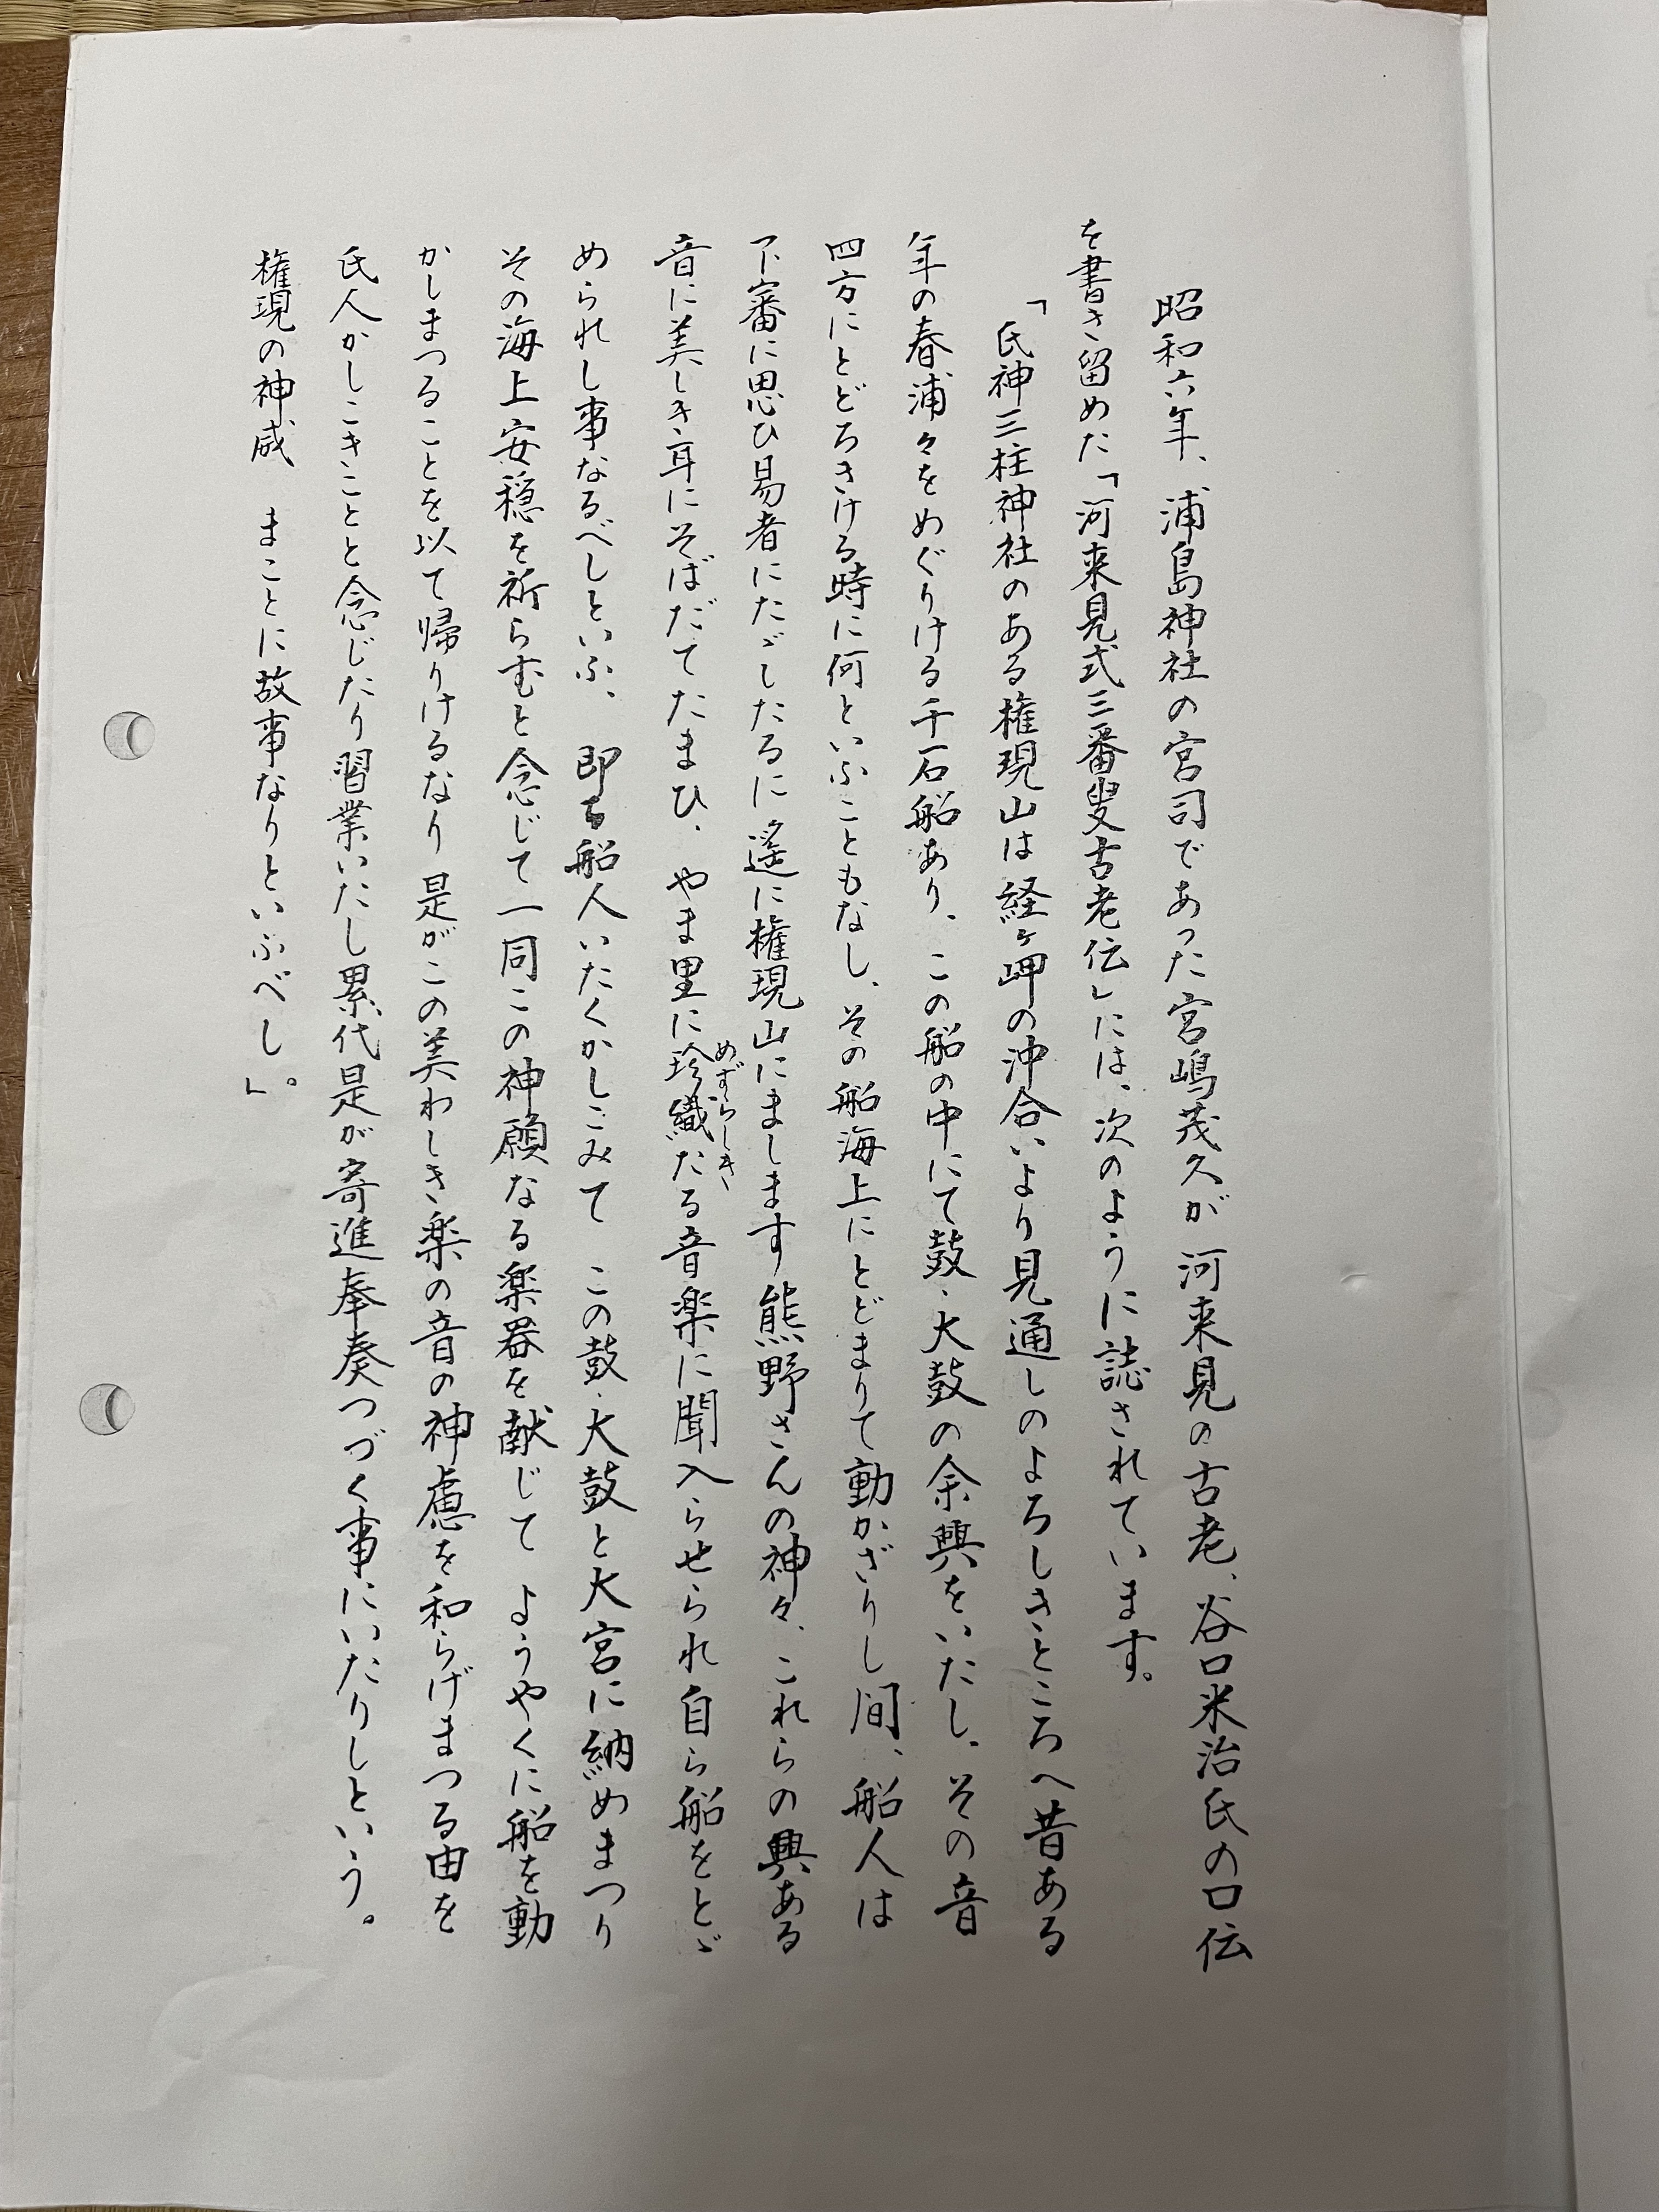 昭和六年、浦島神社の宮司であった宮嶋茂久が河来見の古老、谷口米治氏の口伝
を書き留めた「河来見式三番叟古老伝」には、次のように誌されています。
「氏神三柱神社のある権現山は経ヶ岬の沖合いより見通しのよろしきところへ昔ある
年の春浦々をめぐりける千石船あり、この船の中にて鼓、大鼓の余興をいたし、その音
四方にとどろきける時に何といふこともなし、その船海上にとどまりて動かざりし間、船人は
下審に思ひ易者にたゞしたるに遙に権現山にまします熊野さんの神々、これらの興ある
音に美しき耳にそばだてたまひ、やま里に珍織たる音楽に聞入らせられ自ら船をとゞ
めずらしき
められし事なるべしといふ、即ち船人いたくかしこみて この鼓、大鼓と大宮に納めまつり
その海上安穏を祈らむと念じて一同この神願なる楽器を献じて ようやくに船を動
かしまつることを以て帰りけるなり 是がこの美わしき楽の音の神慮を和らげまつる由を
氏人かしこきことと念じたり習業いたし累代是が寄進奉奏つづく事にいたりしという。
権現の神威 まことに故事なりといふべし。」